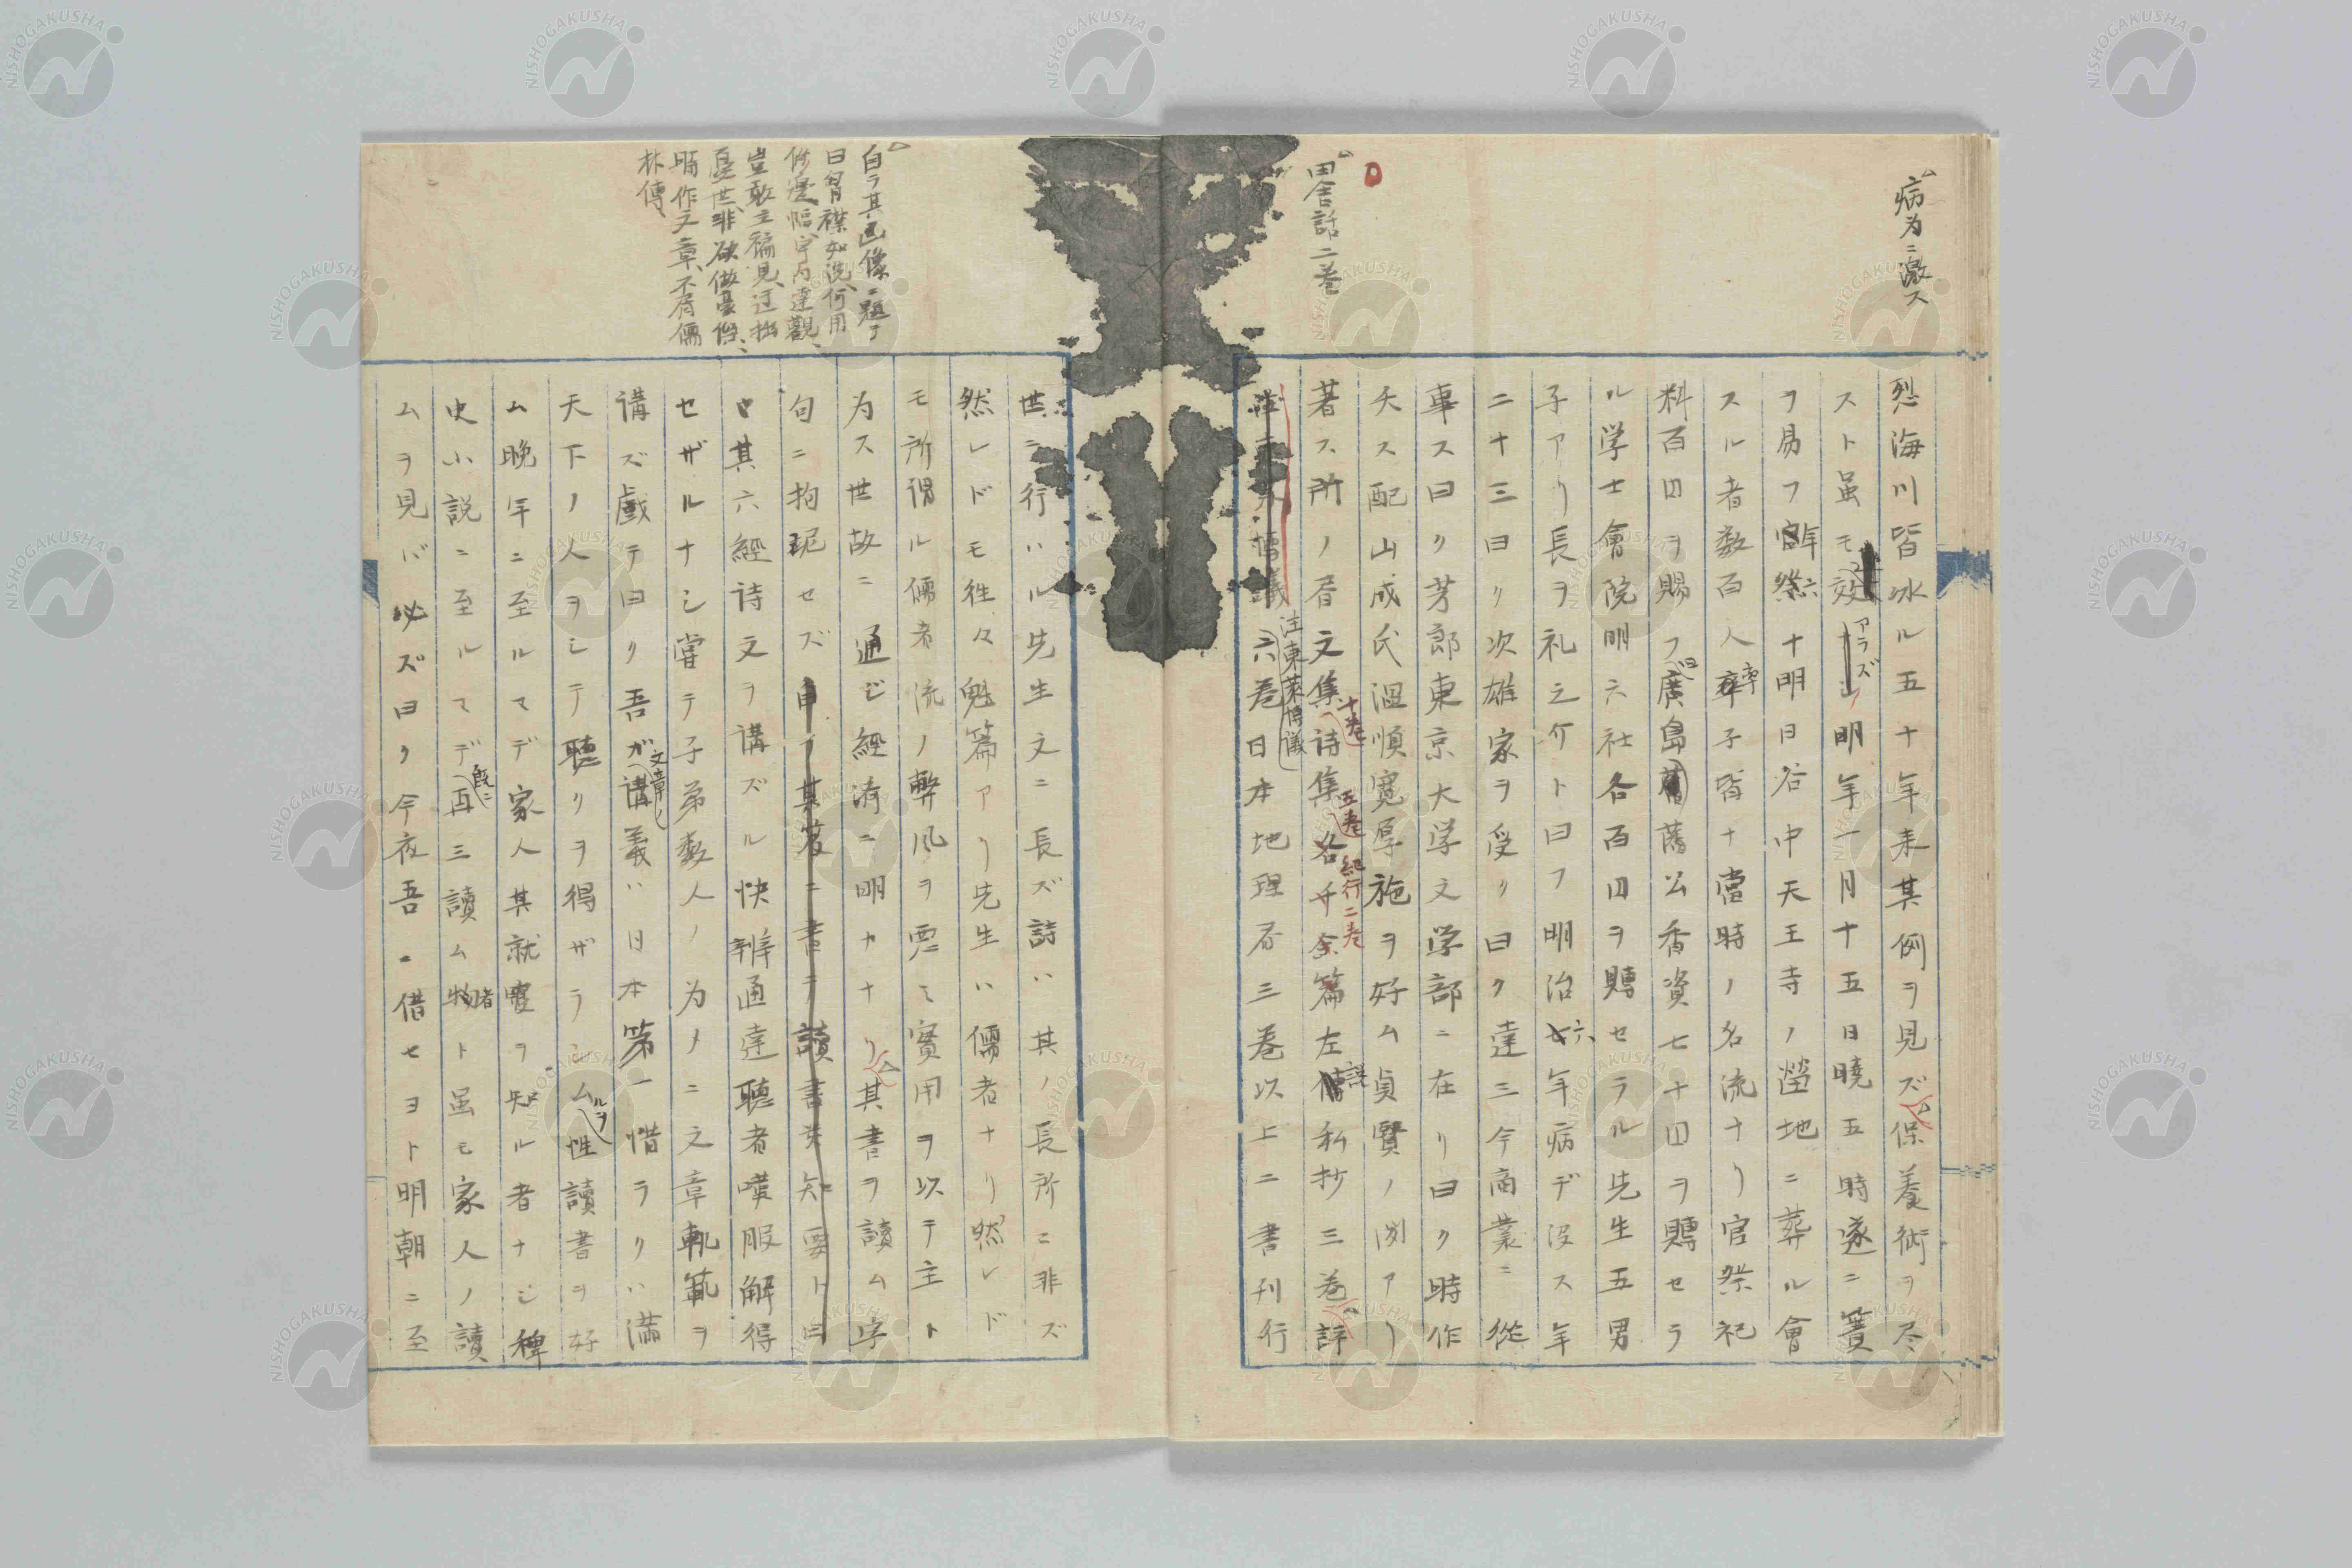 病為ニ激ス
烈海川皆冰ル五十年来其例ヲ見ズ保養術ヲ尽
スト虽モ效アラズ明年一月十五日曉五時遂ニ簀
ヲ易フ年六十明日谷中天王寺ノ塋地ニ葬ル會
スル者数百人率子皆ナ當時ノ名流ナリ官祭祀
料百円ヲ賜フ廣島舊公香資七十円ヲ賻セラ
ル学士會院明六社各百円ヲ賻セラル先生五男
子アリ長ヲ礼之介ト曰フ明治六年病デ没ス年
二十三曰リ次雄家ヲ受リ曰ク達三今商業ニ從
事ス曰ク芳郎東京大学文学部ニ在リ曰ク時作
夭ス配山成氏温順寛厚施ヲ好ム貞賢ノ聞アリ
田舎話二巻
著ス所ノ者文集十巻詩集五巻紀行二巻各千余篇左傳説私抄三巻評
注東萊博議六巻日本地理沿三巻以上二書刊行
世ニ行ハル先生文ニ長ズ詩ハ其ノ長所ニ非ズ
然レドモ往々魁篇アリ先生ハ儒者ナリ然レド
モ所謂ル儒者流ノ弊風ヲ悪ミ實用ヲ以テ主ト
為ス世故ニ通ジ經済ニ明カナリ其書ヲ讀ム字
句ニ拘泥セズ
自ラ其画像ニ題テ
曰胷襟如洗何用
修邊幅宇内達觀
豈敢主褊見迂拙
憂世非欲倣豪傑
晤作文章不屑儒
林傳
其六經詩文ヲ講ズル快辨通達聽者嘆服解得
セザルナシ嘗テ子弟数人ノ为メニ文章軌範ヲ
講ズ戯テ曰ク吾ガ文章ノ講義ハ日本第一惜ラクハ満
天下ノ人ヲシテ聽クヲ得ザラシムルヲ性讀書ヲ好
ム晩年ニ至ルマデ家人其就寢ヲ知ル者ナシ稗
史小説ニ至ルマデ既ニ再三讀ム者ト虽モ家人ノ讀
ムヲ見バ必ズ曰ク今夜吾ニ借セヨト明朝ニ至
NISHOGAKUSHA